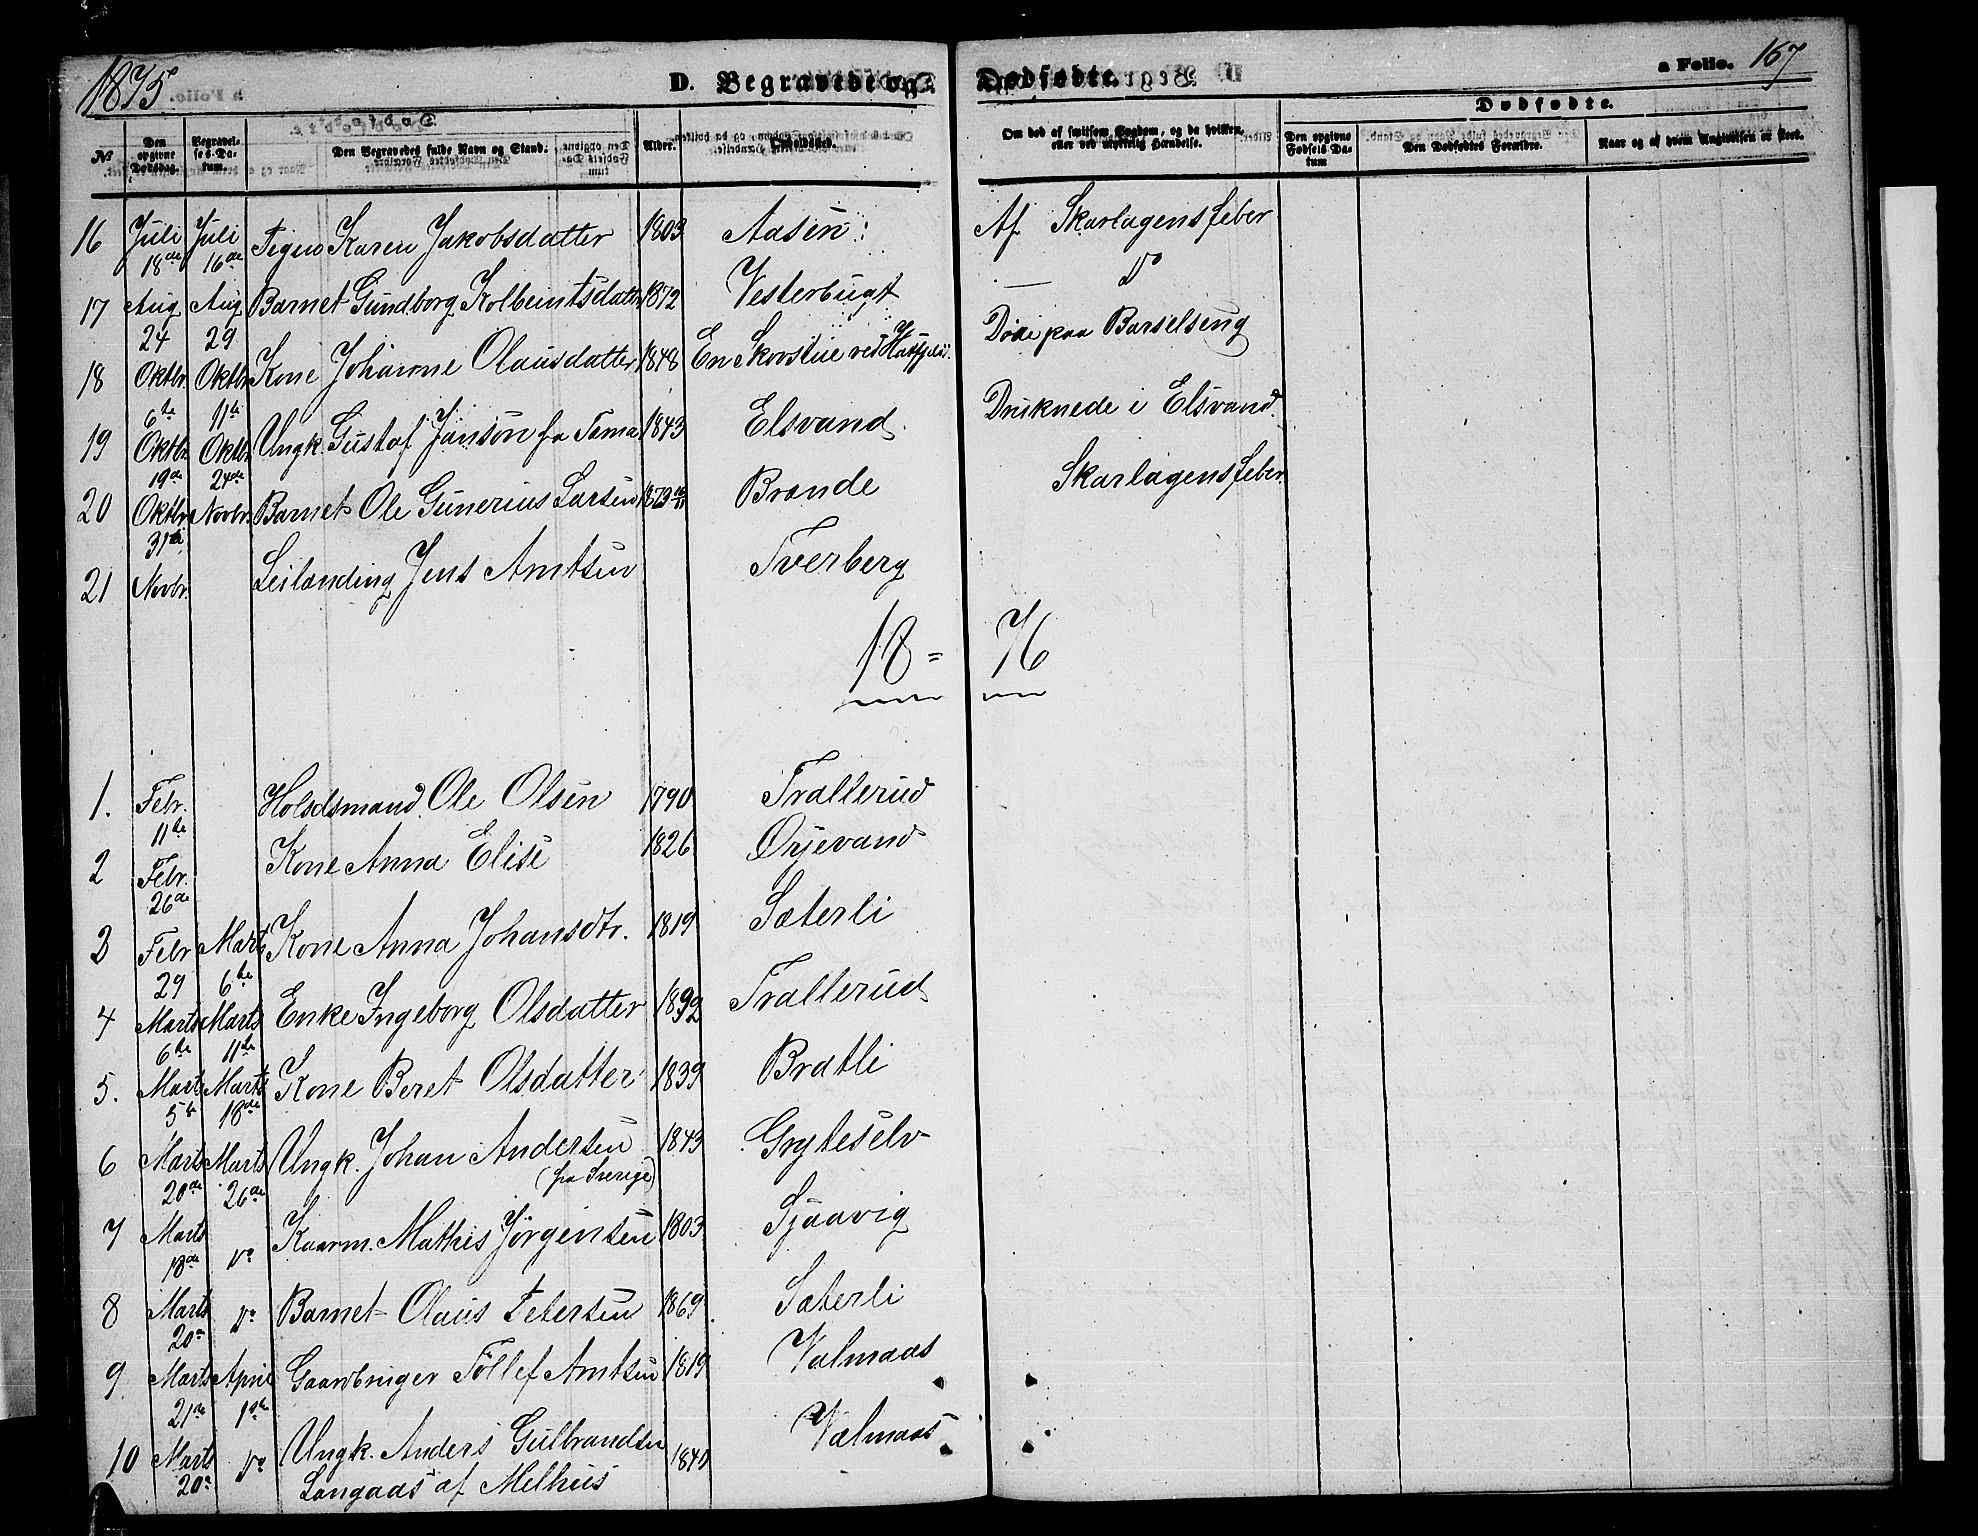 1875
D. Begravede og Dødfødte.
a Folio. 167
Dødfødte.
No
Den opgivne Dødsdag.
Begravelses-Datum.
Den Begravedes fulde Navn og Stand.
Alder.
Opholdssted.
Om død af smitsom Sygdom, og da hvilken, eller ved ulykkelig Hændelse.
Den opgivne Fødsels Datum
Den Dødfødtes Forældre.
Naar og af hvem Anvisningen er skeet.
16 Juli 18de Juli 16de Karen Jakobsdatter 1803 Aasen Af Skarlagensfeber
17 Aug 24 Aug 29 Barnet Gundborg Kolbeintsdatter 1872 Vesterbugt — Do
18 Oktbr. 6te Oktbr 11te Kone Johanne Olausdatter 1848 En Skovstue ved Hatfjeld. Døde paa Barselseng
19 Oktbr. 19de Oktbr. 24de Ungk. Gustaf Jonson fra 1843 Elsvand. Druknede i Elsvand.
20 Oktbr. 31te Novbr. Barnet Ole Gunerius Larsen 1873 Brænde Skarlagensfeber
21 Novbr. Leilænding Jens Arntsen Tverberg
18 = 76
1. Febr. 11te Holdsmand Ole Olsen 1790 Trallerud
2 Febr. 26de Kone Anna Elise 1826 Ørjevand
3 Febr 29 Marts 6te Kone Anna Johansdtr. 1819 Sæterli
4 Marts 6te Marts 11te Enke Ingeborg Olsdatter Trallerud
5. Marts 5te Marts 18de Kone Beret Olsdatter 1839 Bratli
6 Marts 20de Marts 26de Ungk. Johan Andersen 1843 Gryteselv
(fra Sverige)
7 Marts 18de Do Kaarm. Mathis Jörgensen 1803 Sjaavig
8 Marts 20de Do Barnet Olaus Petersen 1869 Sæterli
9. Marts 21de April 1ste Gaardbruger Tollef Arntsen 1819 Valmaas
10 Marts 20de Do Ungk. Anders Gulbrandsen 1840 Valmaas
Langaas af Melhus